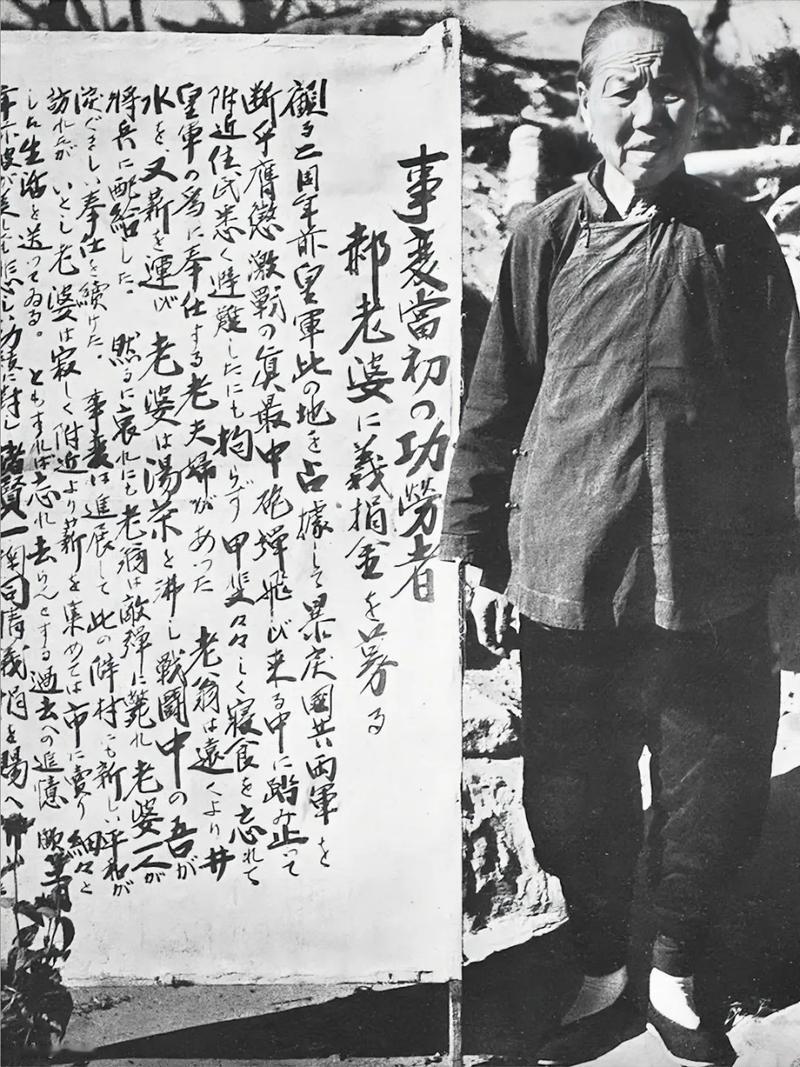 事変當初の功勞者
郝老婆に義捐金を募る
顧る二周年前皇軍此の地を占據して暴戻國共両軍を
断乎膺懲激戰の眞最中砲弾飛び来る中に踏み止って
附近住民悉く避難したにも拘らず甲斐々々しく寝食を忘れて
皇軍の為に奉仕する老夫婦があった 老翁は遠くより井
水を、又薪を運び 老婆は湯茶を沸し戰闘中の吾が
將兵に配給した。 然るに哀れにも老翁は敵弾に斃れ老婆一人が
涙ぐましい奉仕を續けた。 事変は進展して此の僻村にも新しい平和が
訪れたが いとし老婆は寂しく附近より薪を集めては市に賣り細々と
生活を送ってゐる。 ともすれば忘れ去らんとする過去への追憶
功績に対し 諸賢一同同情義捐を賜へ